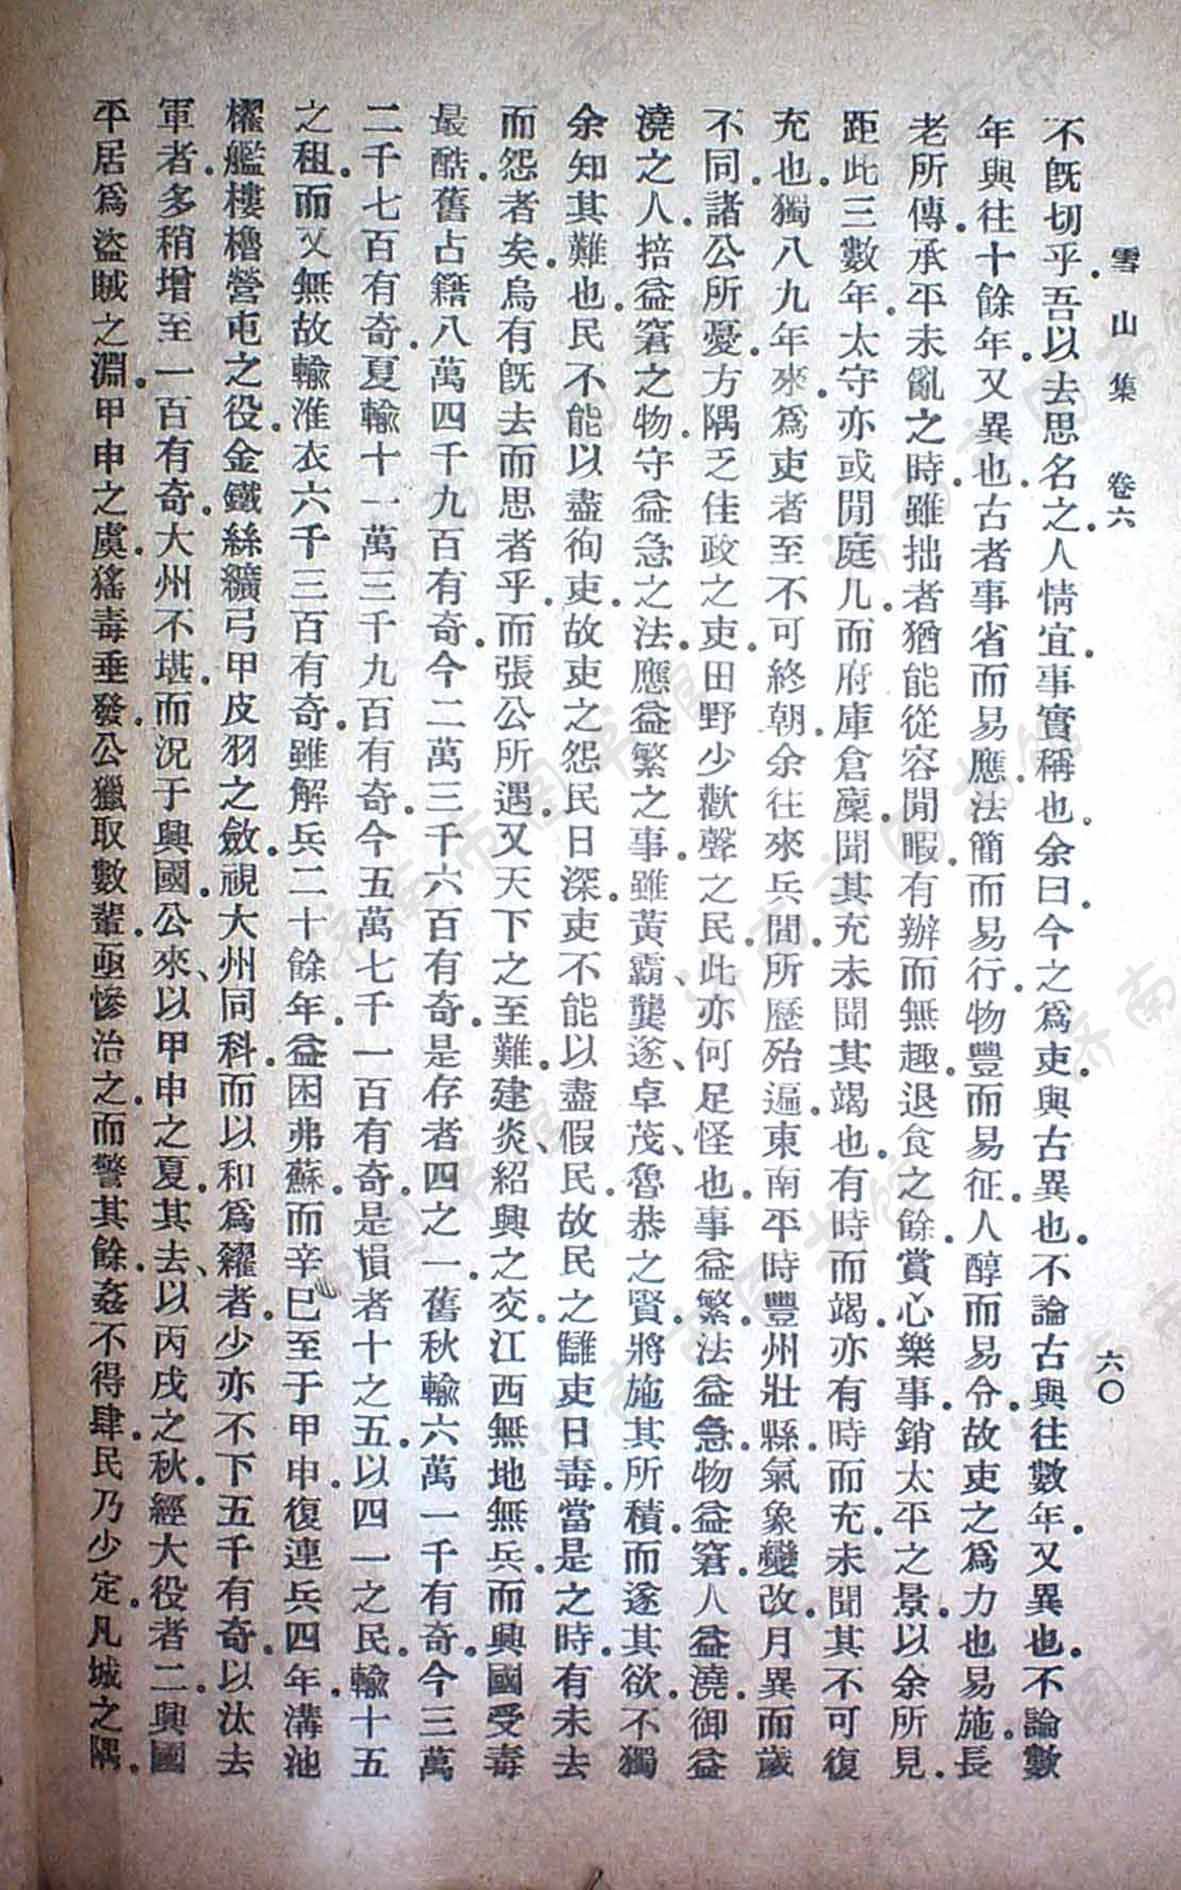 雪山集　卷六　六〇
不旣切乎。吾以去思名之。人情宜。事實稱也。余曰。今之爲吏。與古異也。不論古與往數年。又異也。不論數
年與往十餘年。又異也。古者事省而易應。法簡而易行。物豐而易征。人醇而易令。故吏之爲力也易施。長
老所傳。承平未亂之時。雖拙者猶能從容閒暇。有辦而無趣。退食之餘。賞心樂事。銷太平之景。以余所見。
距此三數年。太守亦或閒庭几。而府庫倉廩。聞其充。未聞其竭也。有時而竭。亦有時而充。未聞其不可復
充也。獨八九年來。爲吏者至不可終朝。余往來兵間。所歷殆遍。東南平時豐州壯縣。氣象變改。月異而歲
不同。諸公所憂。方隅乏佳政之吏。田野少歡聲之民。此亦何足怪也。事益繁。法益急。物益窘。人益澆。御益
澆之人。掊益窘之物。守益急之法。應益繁之事。雖黃霸、龔遂、卓茂、魯恭之賢。將施其所積。而遂其欲。不獨
余知其難也。民不能以盡徇吏。故吏之怨民日深。吏不能以盡假民。故民之讎吏日毒。當是之時。有未去
而怨者矣。烏有旣去而思者乎。而張公所遇。又天下之至難。建炎、紹興之交。江西無地無兵。而興國受毒
最酷。舊占籍八萬四千九百有奇。今二萬三千六百有奇。是存者四之一。舊秋輸六萬一千有奇。今三萬
二千七百有奇。夏輸十一萬三千九百有奇。今五萬七千一百有奇。是損者十之五。以四一之民。輸十五
之租。而又無故輸淮衣六千三百有奇。雖解兵二十餘年。益困弗蘇。而辛巳至于甲申。復連兵四年。溝池
櫂艦樓櫓營屯之役。金鐵絲纊弓甲皮羽之斂。視大州同科。而以和爲糴者。少亦不下五千有奇。以汰去
軍者。多稍增至一百有奇。大州不堪。而況于興國。公來、以甲申之夏。其去、以丙戌之秋。經大役者二。興國
平居爲盜賊之淵。甲申之虞。猺毒垂發。公獵取數輩。亟慘治之。而警其餘。姦不得肆。民乃少定。凡城之隅。